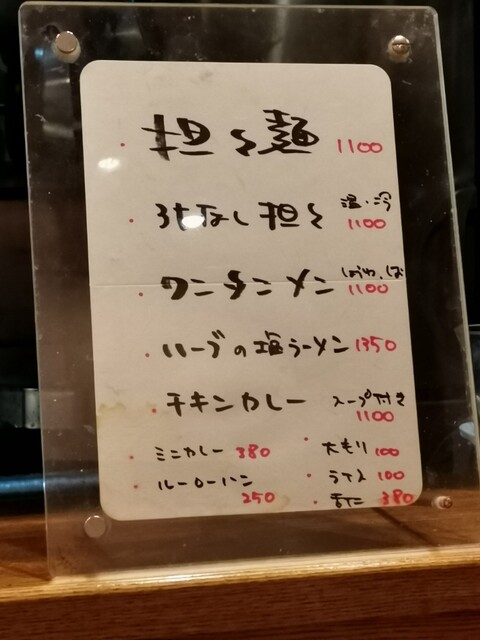 担々麺 1100
汁なし担々 温・冷 1100
ワンタンメン 1100
ハーブの塩ラーメン 1350
チキンカレー スープ付き 1100
ミニカレー 380
大もり 100
ルーローハン 250
ライス 100
380